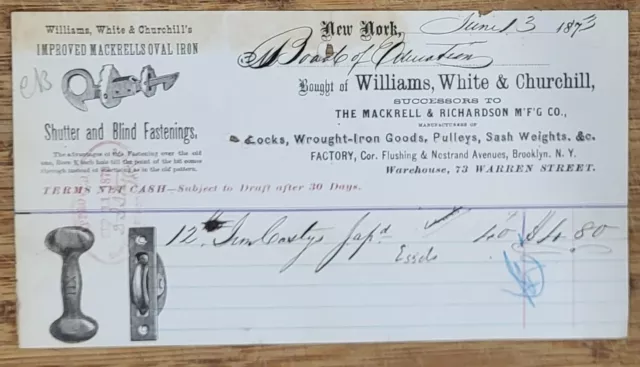 Williams, White & Churchill's
IMPROVED MACKRELLS OVAL IRON
Shutter and Blind Fastenings.
The advantages of this Fastening over the old
one, draw ¾ inch
through instead of as in the old pattern.
TERMS NET CASH—Subject to Draft after 30 Days.
New York, June 13 1873
Board of Education
Bought of Williams, White & Churchill,
SUCCESSORS TO
THE MACKRELL & RICHARDSON M'F'G CO.,
MANUFACTURERS OF
Locks, Wrought-Iron Goods, Pulleys, Sash Weights, &c.
FACTORY, Cor. Flushing & Nostrand Avenues, Brooklyn, N. Y.
Warehouse, 73 WARREN STREET.
12 Jap'd 40 $4.80